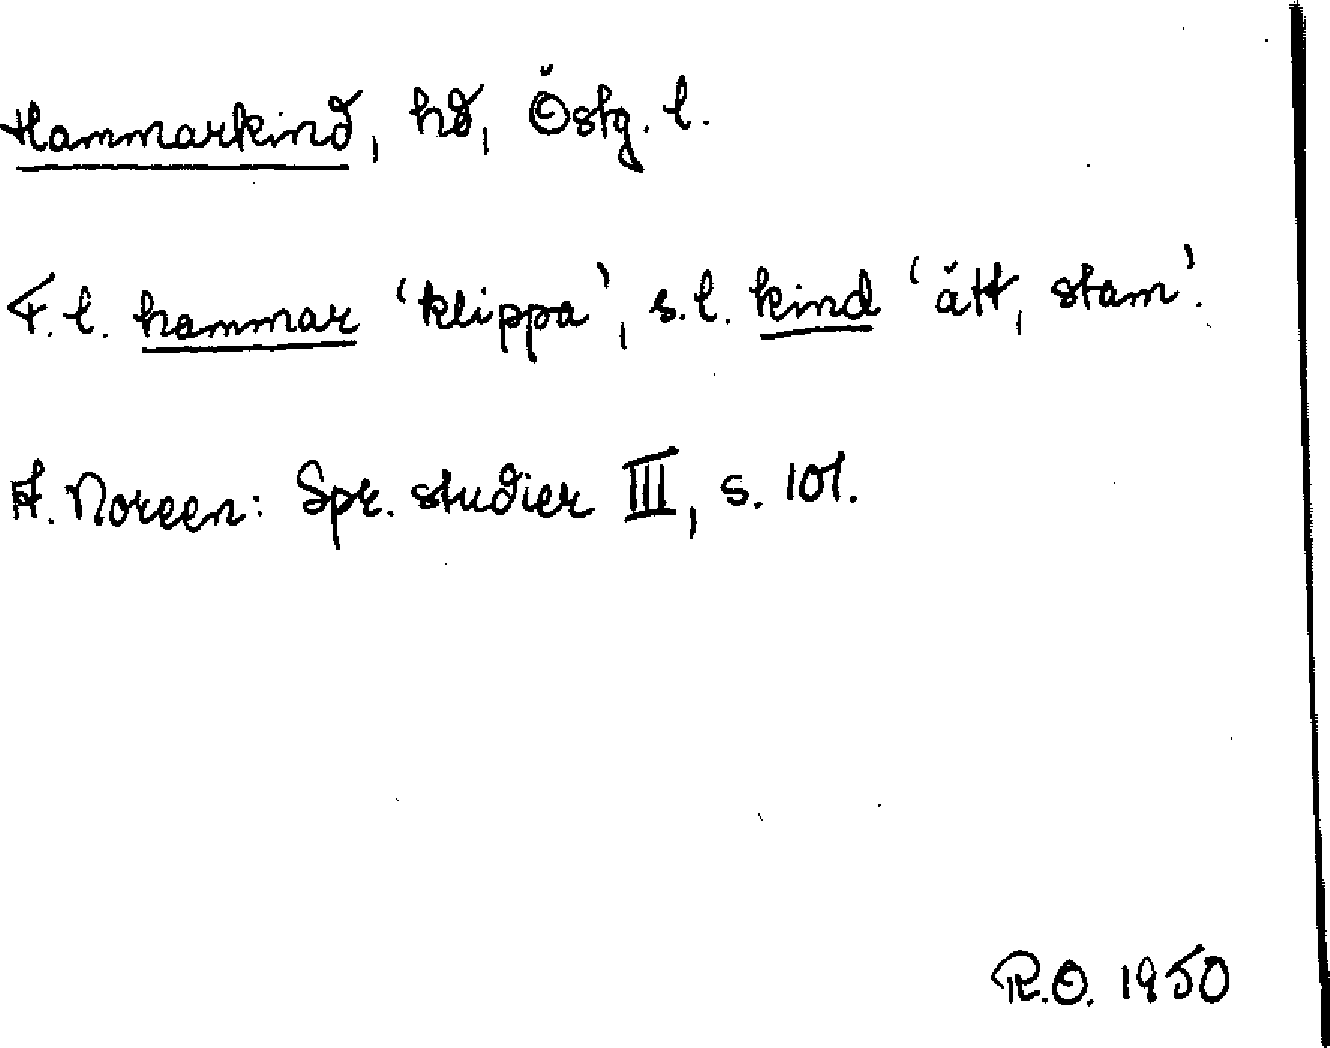 Hammarkind, hd, Östg. l.
F. l. hammar 'klippa', s. l. kind 'ätt, stam'.
A. Noreen: Spr. studier III, s. 101.
R.O. 1950